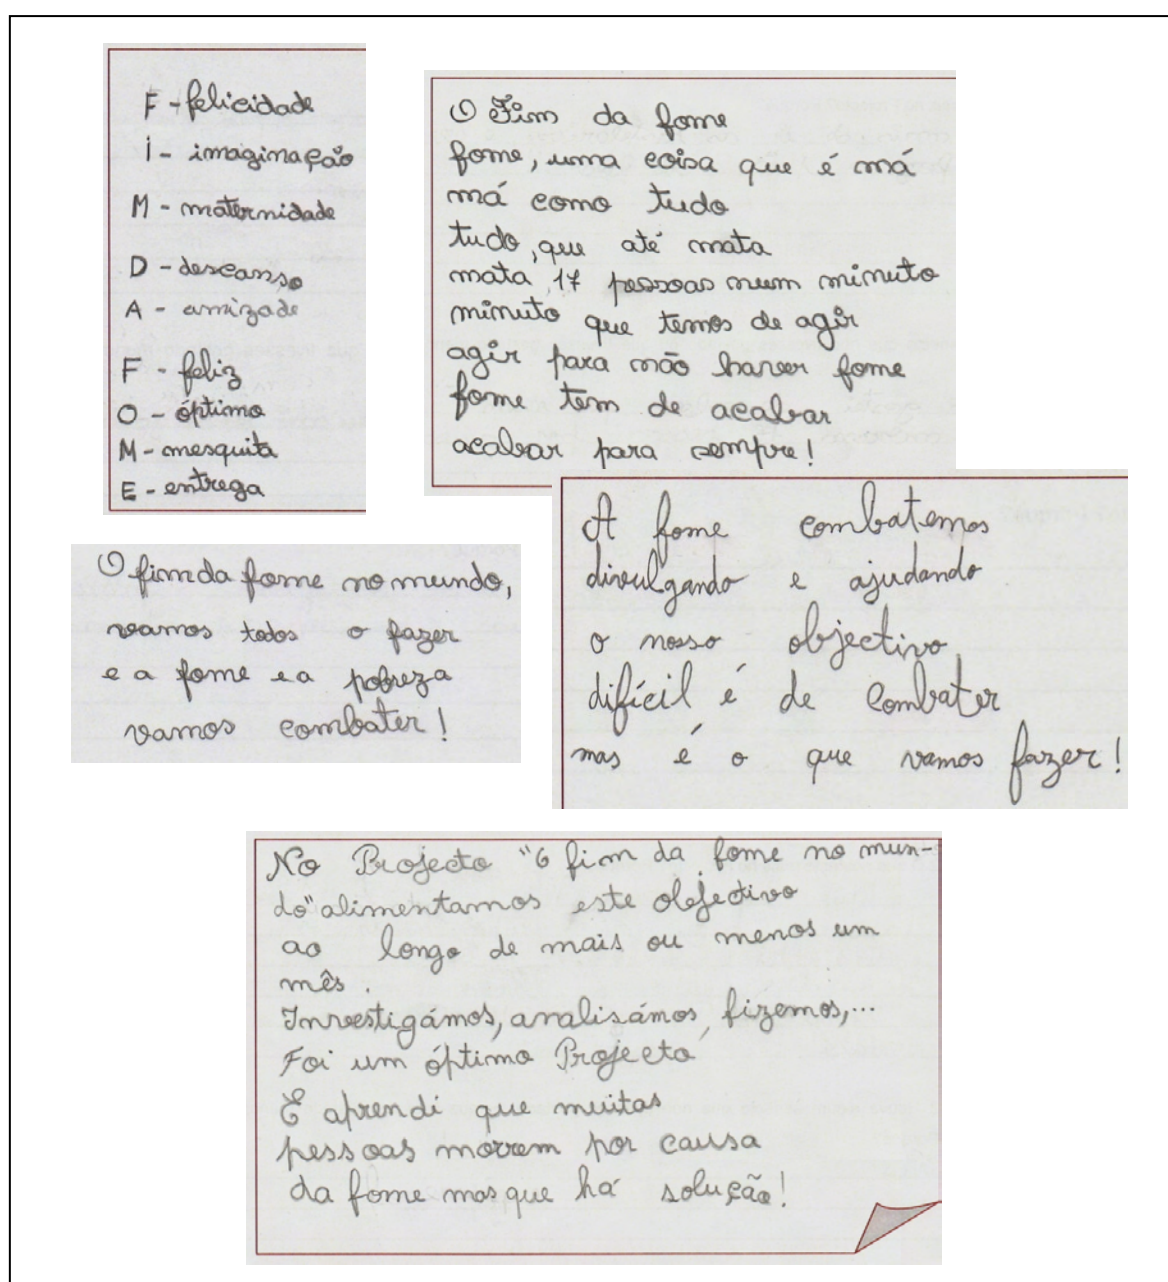 F - felicidade
i - imaginação
M - maternidade
D - descanso
A - amizade
F - feliz
O - óptimo
M - mesquita
E - entrega
O Fim da fome
fome, uma coisa que é má
má como tudo
tudo, que até mata
mata 17 pessoas num minuto
minuto que temos de agir
agir para não haver fome
fome tem de acabar
acabar para sempre!
O fim da fome no mundo,
vamos todos o fazer
e a fome e a pobreza
vamos combater!
A fome combatemos
divulgando e ajudando
o nosso objectivo
difícil é de combater
mas é o que vamos fazer!
No Projecto "O fim da fome no mun-
do" alimentamos este objectivo
ao longo de mais ou menos um
mês.
Investigámos, analisámos, fizemos,...
Foi um óptimo Projecto
E aprendi que muitas
pessoas morrem por causa
da fome mas que há solução!